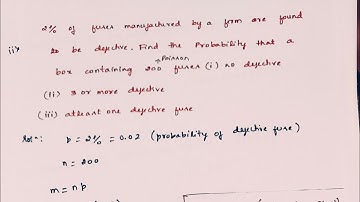 2% of fuses manufactured by a firm are found
ii> to be defective. Find the Probability that a
Poisson
box containing 200 fuses (i) no defective
(ii) 3 or more defective
(iii) atleast one defective fuse
Soln: p = 2% = 0.02 (probability of defective fuse)
n = 200
m = np